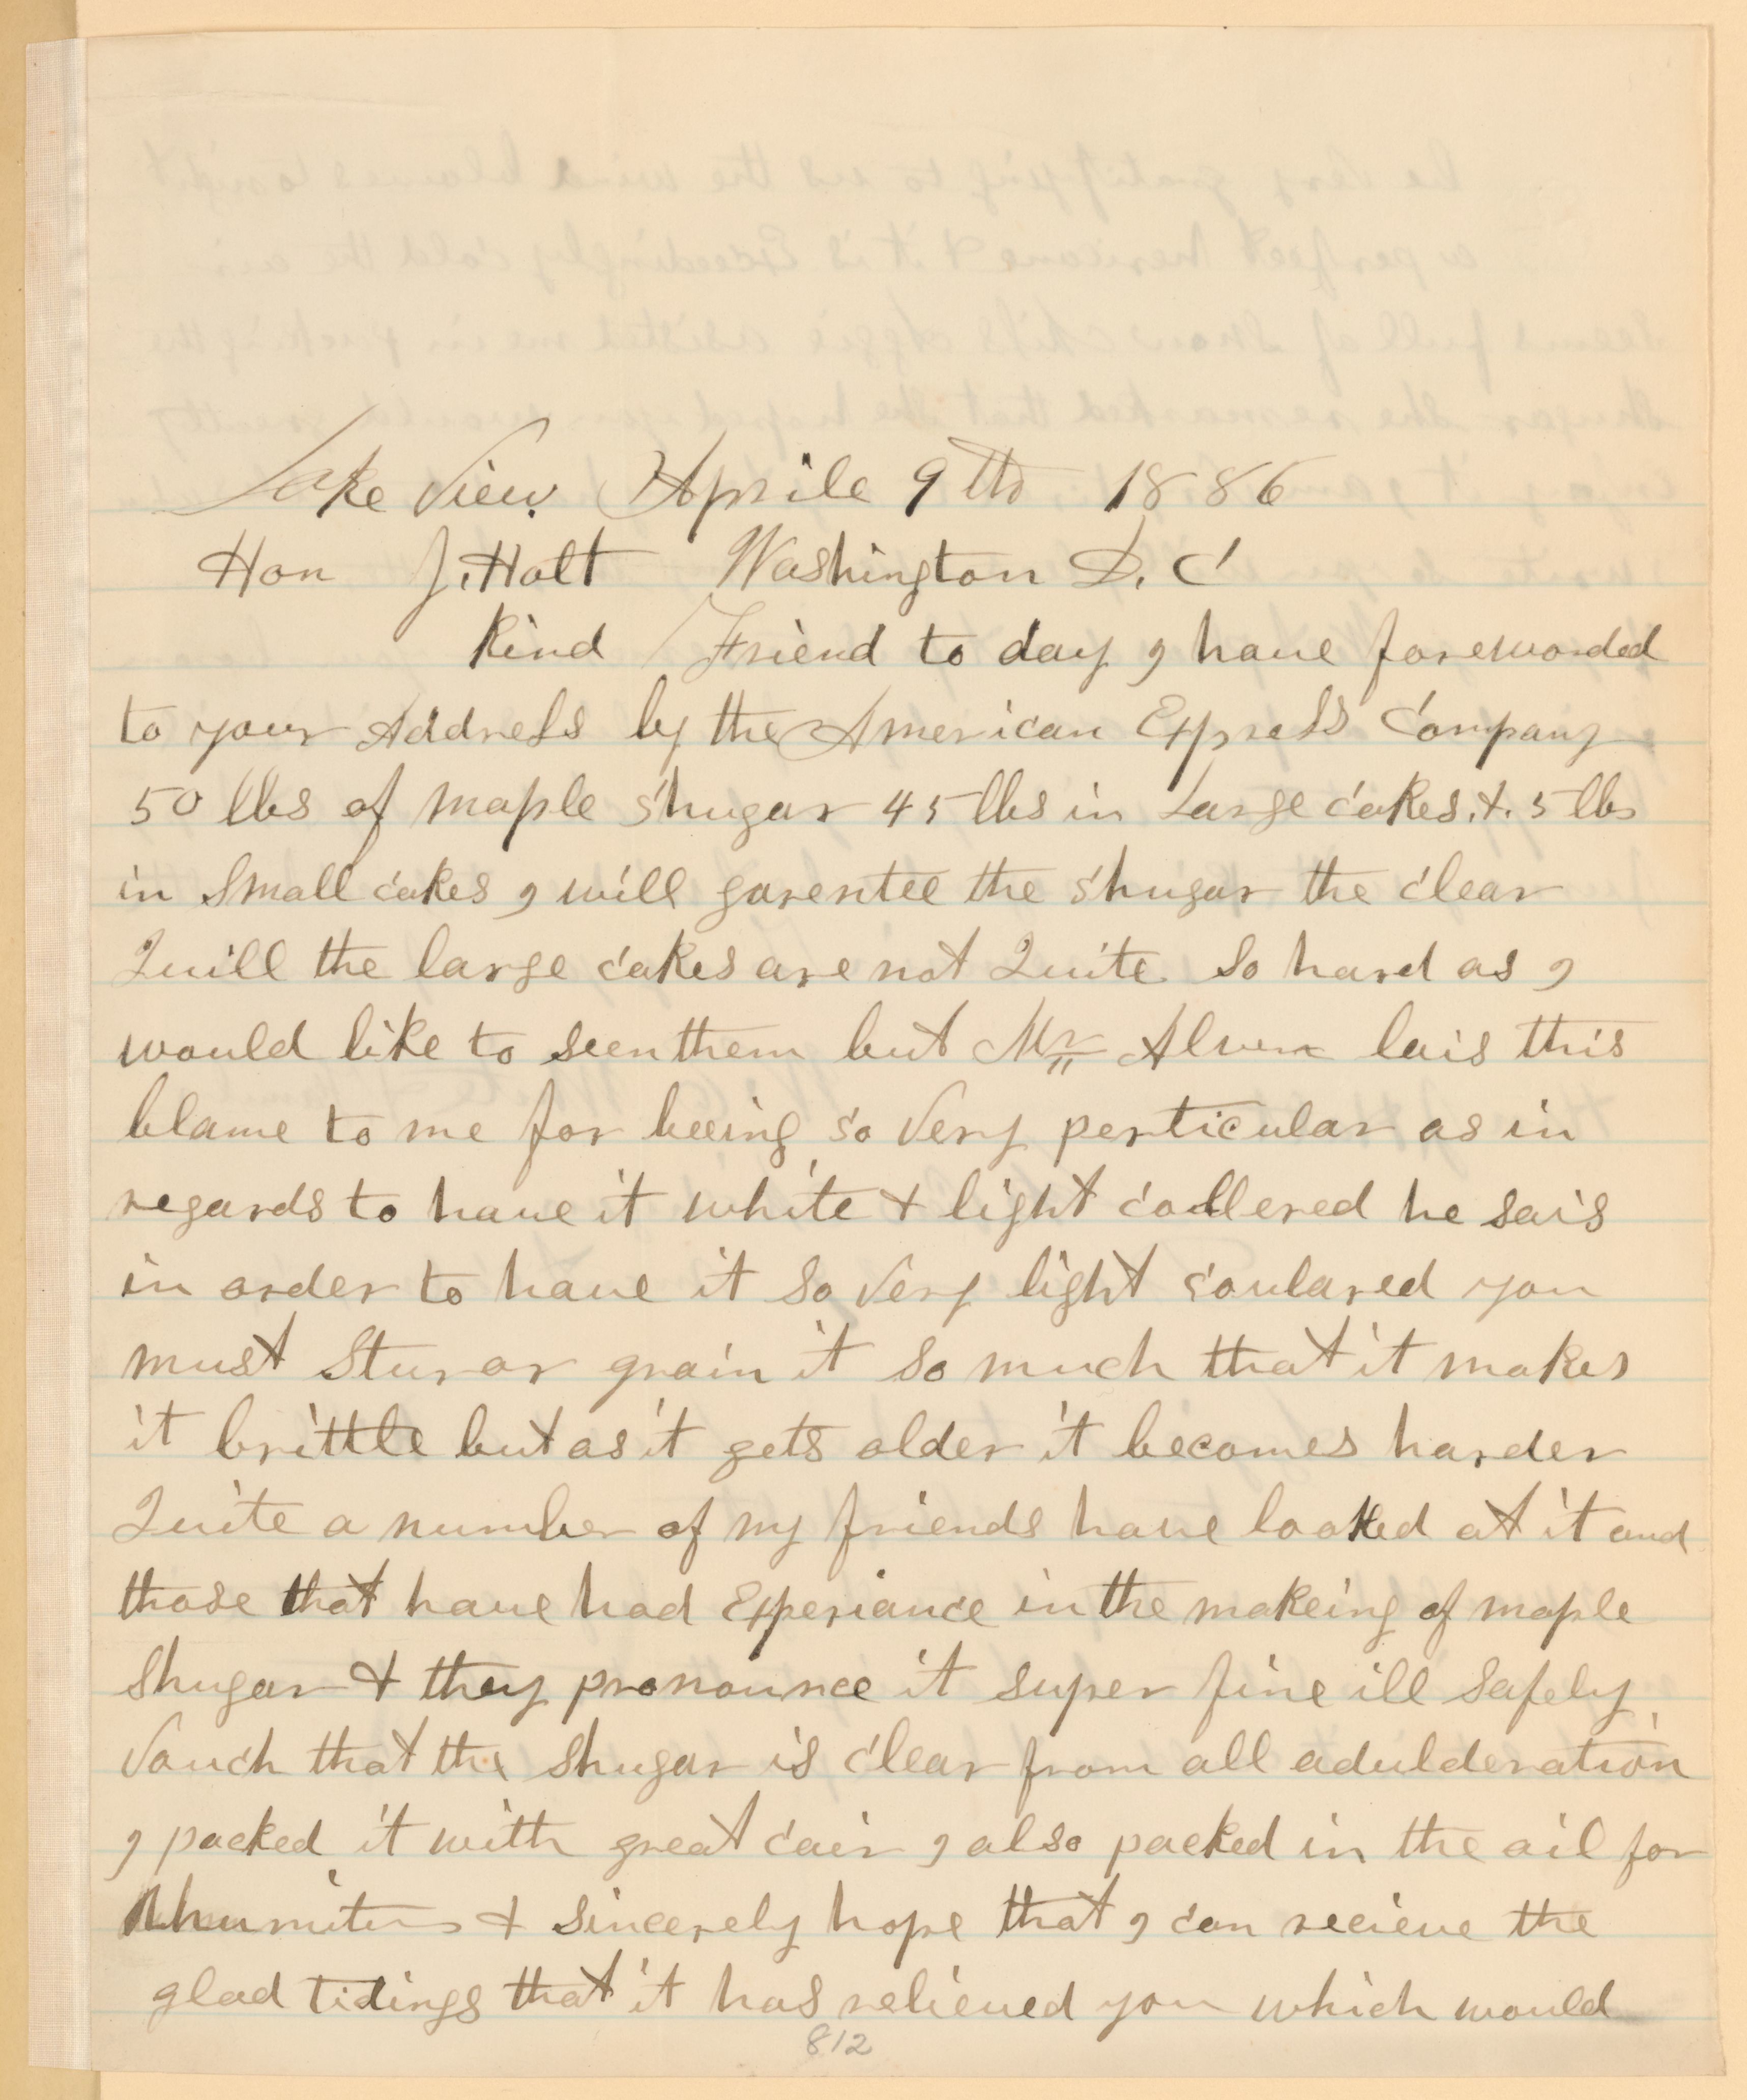 Lake View Aprile 9th 1886
Hon J. Holt Washington D. C
Kind Friend to day I have forewarded
to your Address by the American Express Company
50 lbs of maple shugar 45 lbs in Large cakes. & . 5 lbs
in Small cakes I will garentee the shugar the clear
Quill the large cakes are not Quite So hard as I
would like to seen them but Mr lais this
blame to me for beeing so Very perticular as in
regards to have it white & light collered he sais
in order to have it So Very light coulared you
must Stur or grain it So much that it makes
it brittle but as it gets older it becomes harder
Quite a number of my friends have looked at it and
those that have had Experiance in the makeing of maple
Shugar & they pronounce it super fine ill Safely
Vouch that the Shugar is clear from all adulderation
I packed it with great cair I also packed in the oil for
& Sincerely hope that I can recieve the
glad tidings that it has relieved you which would
812